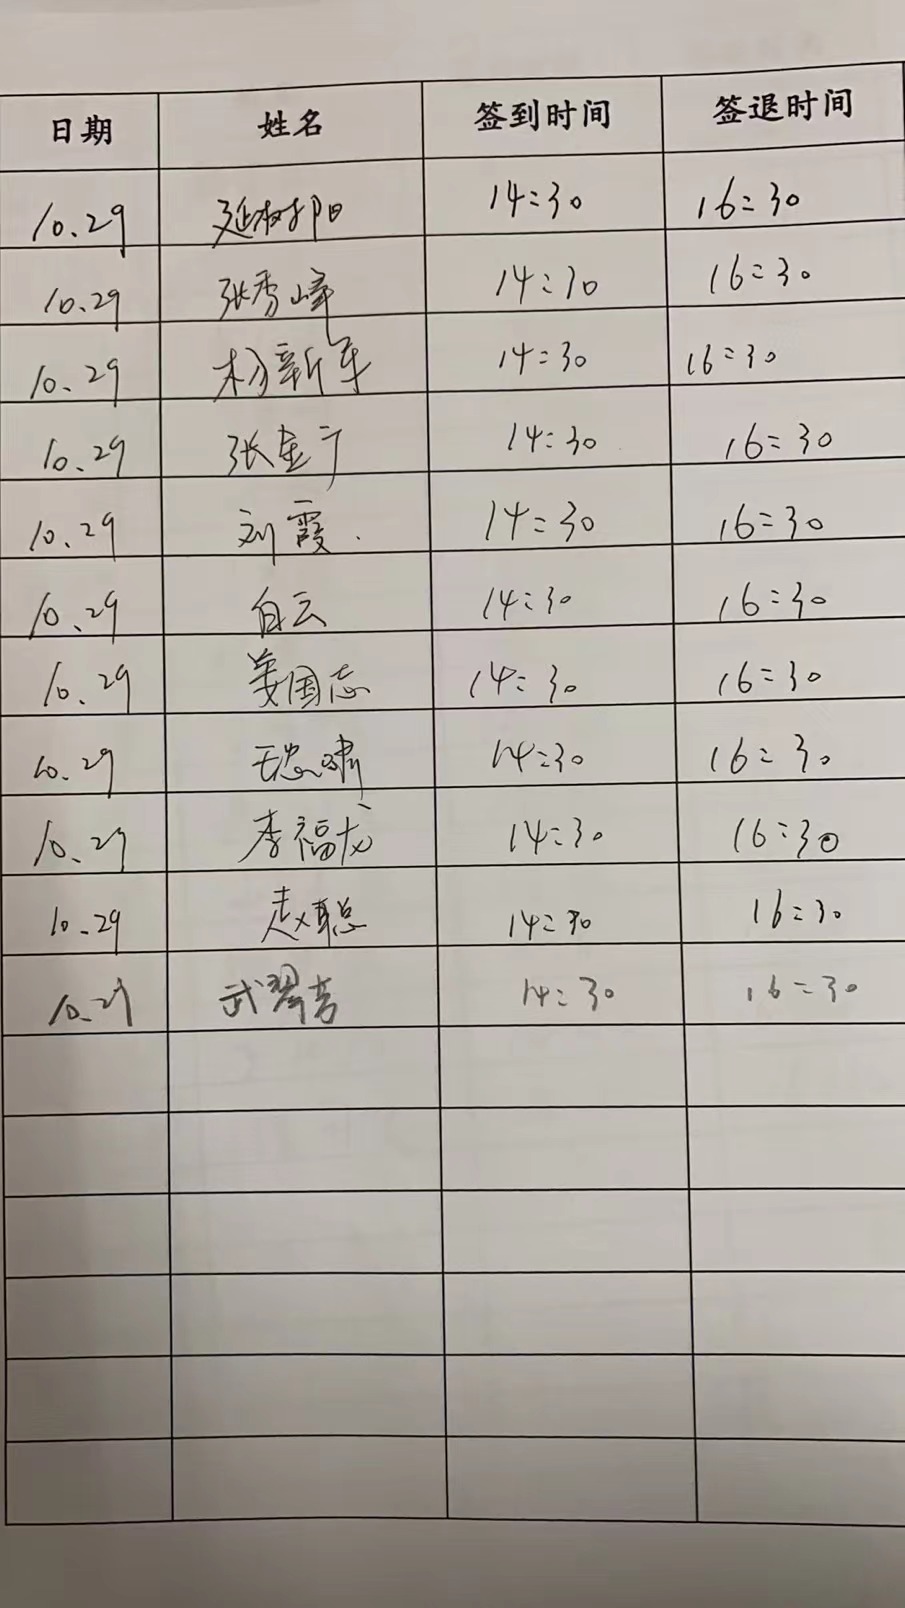 日期 姓名 签到时间 签退时间
10.29 延树阳 14:30 16:30
10.29 张秀峰 14:30 16:30
10.29 杨新军 14:30 16:30
10.29 张 14:30 16:30
10.29 刘霞. 14:30 16:30
10.29 白云 14:30 16:30
10.29 姜国志 14:30 16:30
10.29 14:30 16:30
10.29 李福龙 14:30 16:30
10.29 赵聪 14:30 16:30
10.29 武翠芳 14:30 16:30